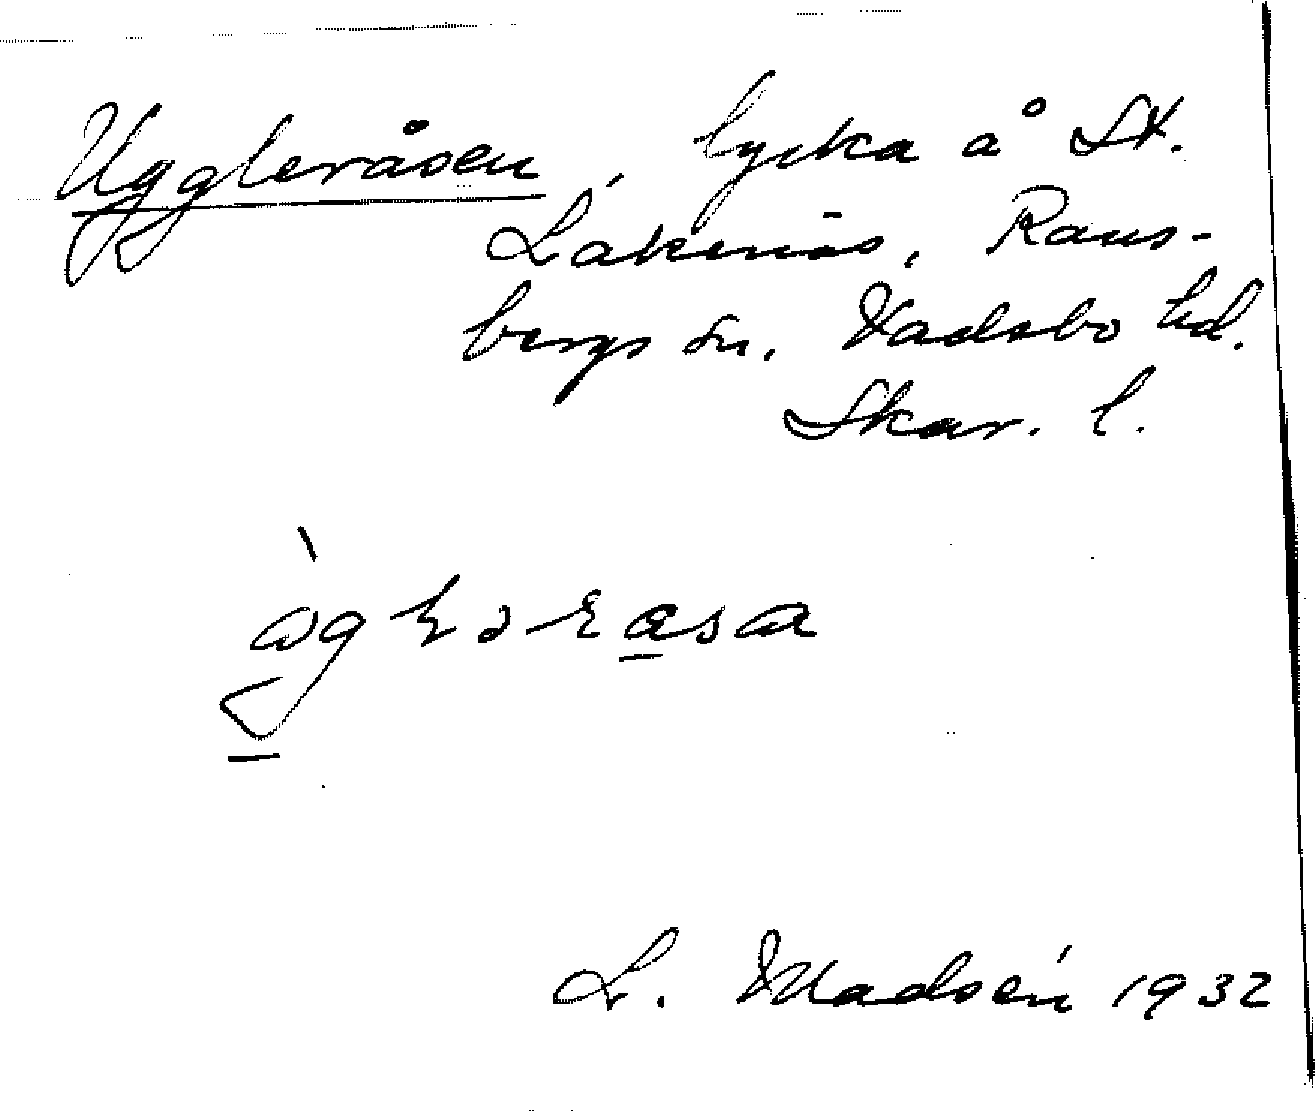 Uggleråsen, lycka å St.
Lakenäs, Rans-
bergs sn. Vadsbo hd.
Skar. l.
L. Madsén 1932